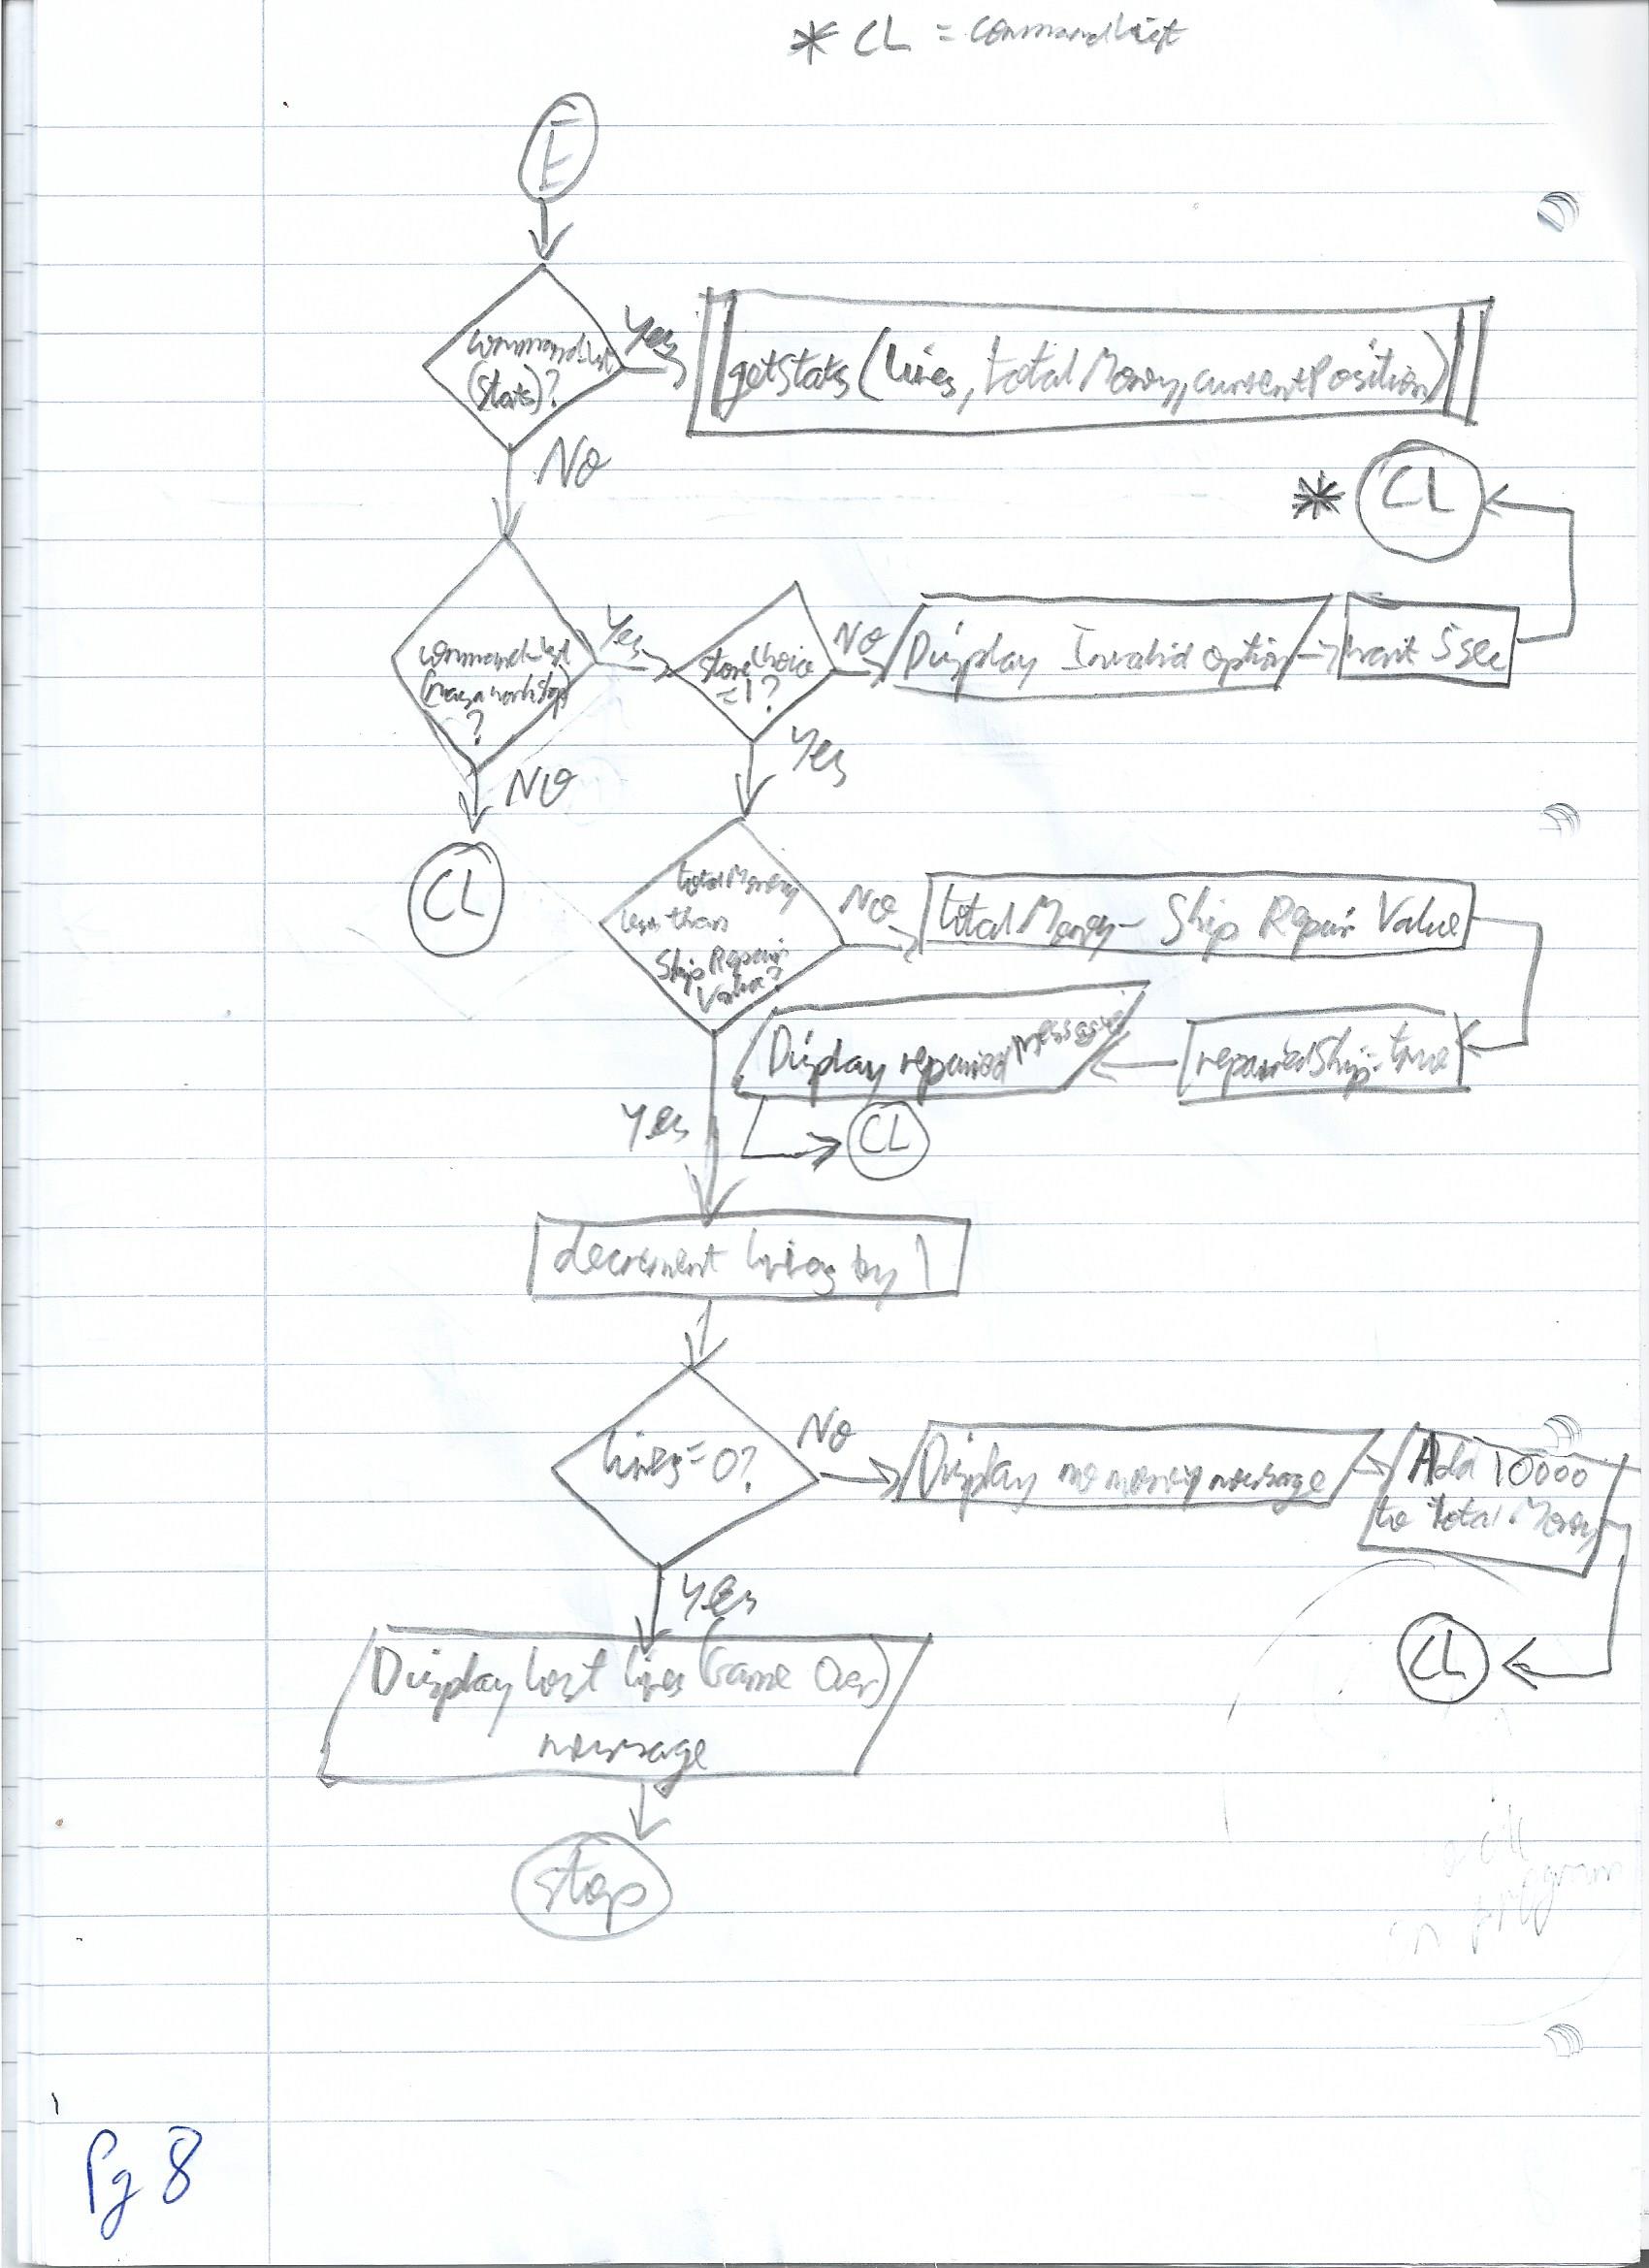 * CL = commandList
E
commandList
(stats)?
Yes
getStats(lives, totalMoney, currentPosition)
No
* CL
commandList
?
Yes
storeChoice
=1?
No
Display Invalid option
wait 5sec
No
Yes
CL
totalMoney
less than
Ship Repair
Value?
No
totalMoney - Ship Repair Value
Display repaired message
repairedShip = true
Yes
CL
decrement lives by 1
lives = 0?
No
Display no money message
Add 10000
to totalMoney
Yes
CL
Display lost lives (Game Over)
message
stop
Pg 8